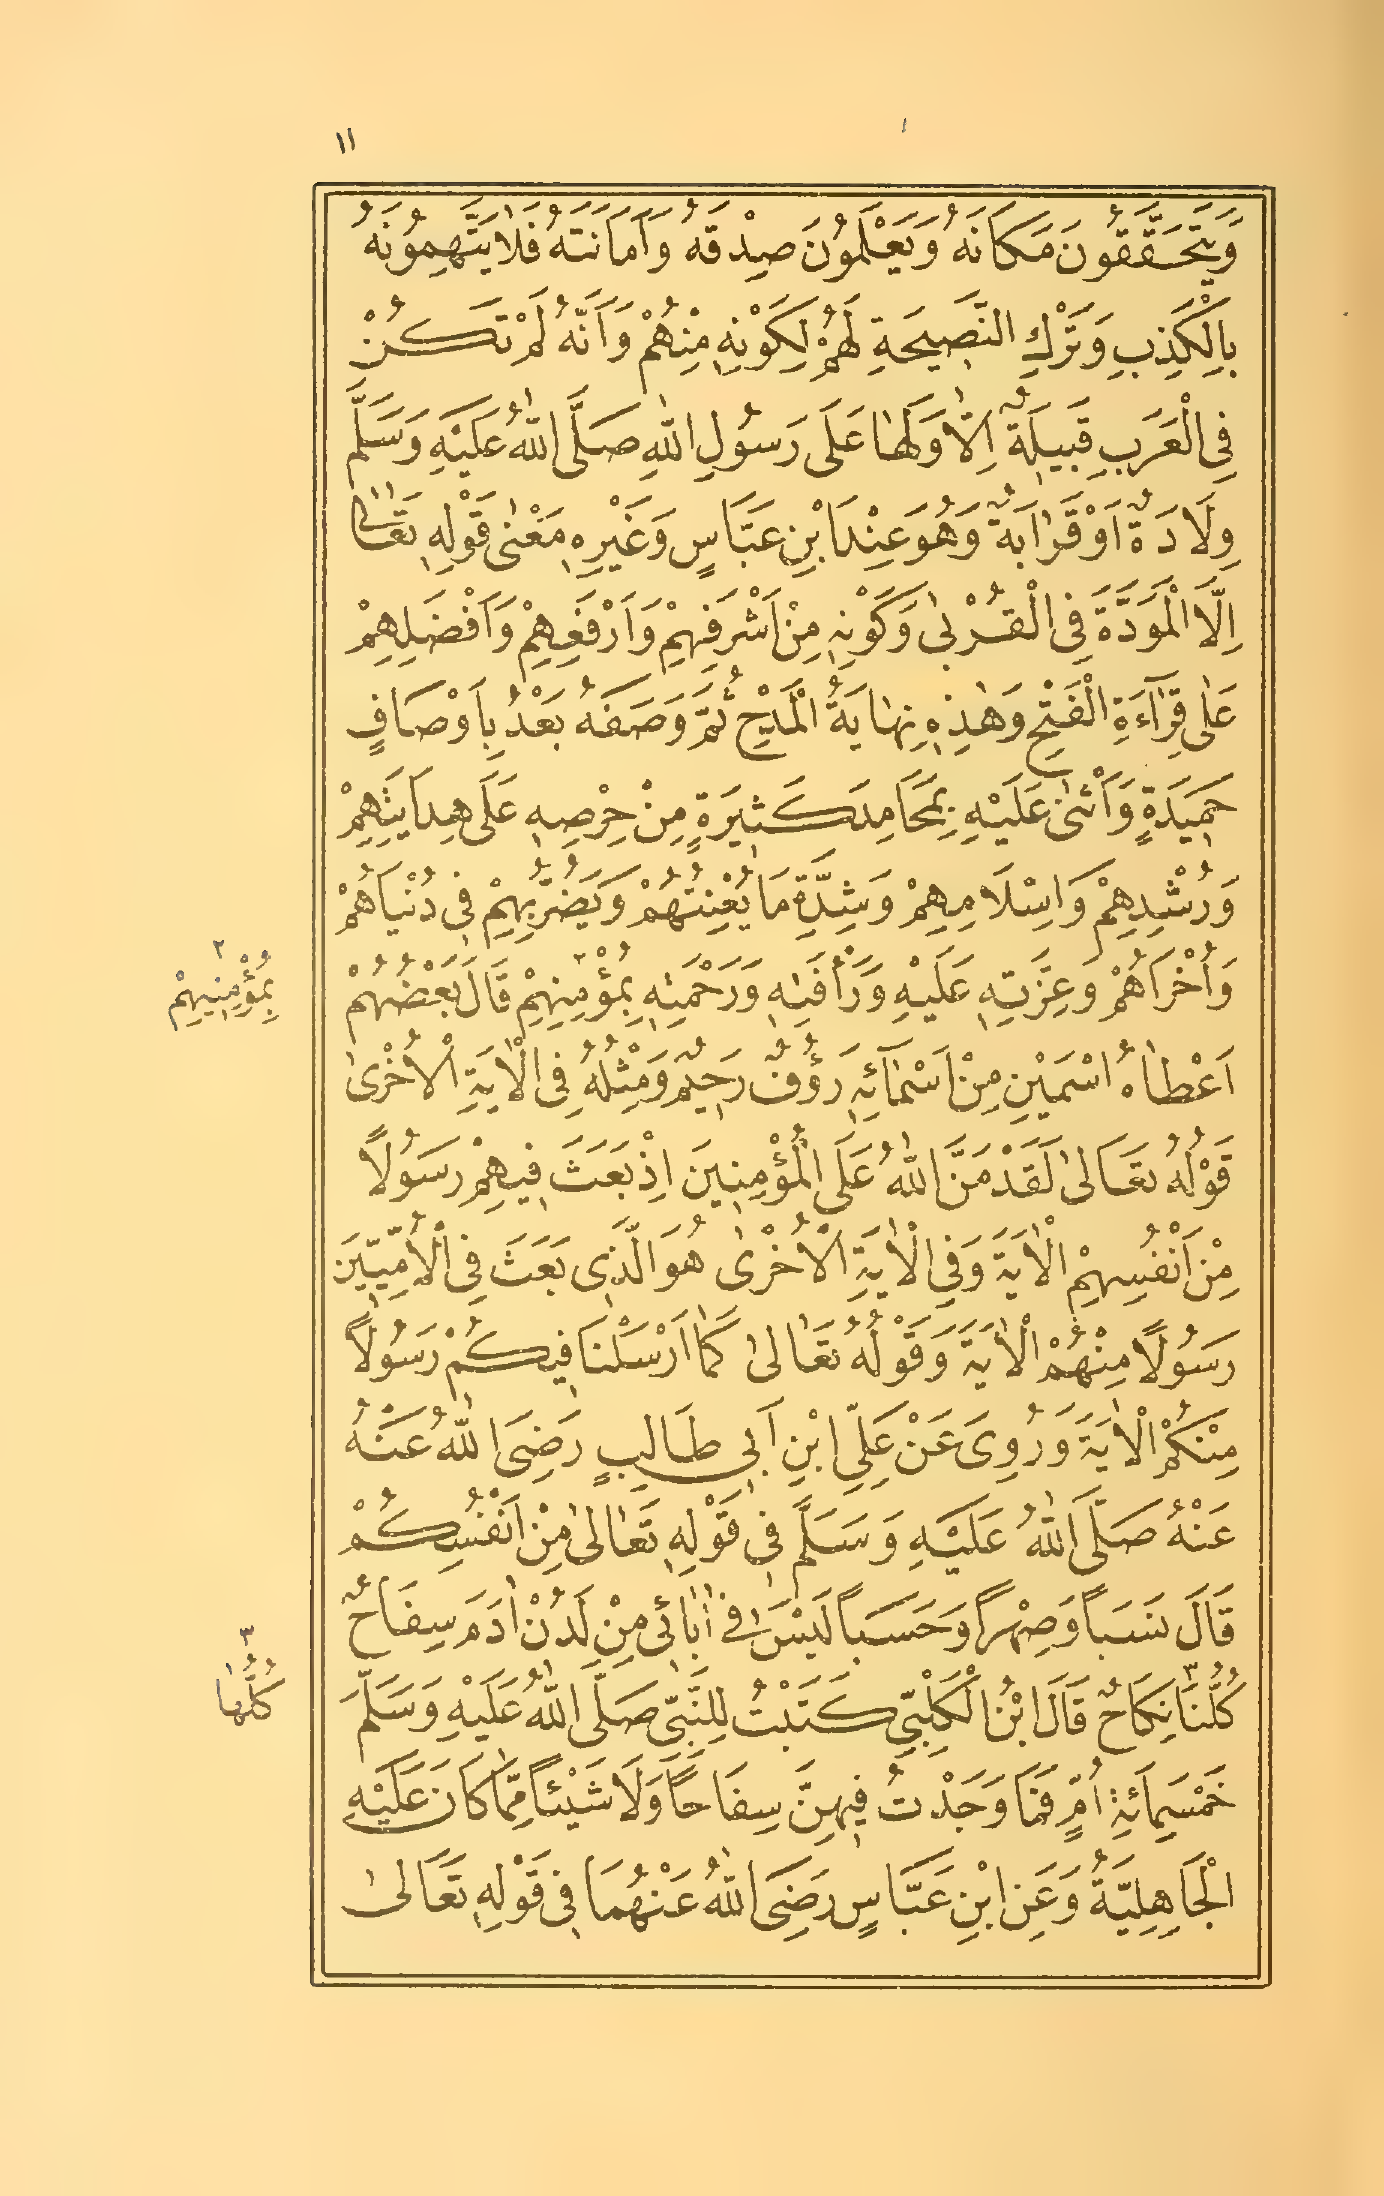 ١١
وَيَتَحَقَّقُونَ مَكَانَهُ وَيَعْلَمُونَ صِدْقَهُ وَاَمَانَتَهُ فَلَا يَتَّهِمُونَهُ
بِالْكَذِبِ وَتَرْكِ النَّصِيحَةِ لَهُمْ لِكَوْنِهِ مِنْهُمْ وَاَنَّهُ لَمْ تَكُنْ
فِى الْعَرَبِ قَبِيلَةٌ اِلَّا وَلَهَا عَلَى رَسُولِ اللّٰهِ صَلَّى اللّٰهُ عَلَيْهِ وَسَلَّمَ
وِلَادَةٌ اَوْ قَرَابَةٌ وَهُوَ عِنْدَ ابْنِ عَبَّاسٍ وَغَيْرِهِ مَعْنٰى قَوْلِهِ تَعَالٰى
اِلَّا الْمَوَدَّةَ فِى الْقُرْبٰى وَكَوْنِهِ مِنْ اَشْرَفِهِمْ وَاَرْفَعِهِمْ وَاَفْضَلِهِمْ
عَلٰى قِرَآءَةِ الْفَتْحِ وَهٰذِهِ نِهَايَةُ الْمَدْحِ ثُمَّ وَصَفَهُ بَعْدُ بِاَوْصَافٍ
حَمِيدَةٍ وَاَثْنٰى عَلَيْهِ بِمَحَامِدَ كَثِيرَةٍ مِنْ حِرْصِهِ عَلَى هِدَايَتِهِمْ
وَرُشْدِهِمْ وَاِسْلَامِهِمْ وَشِدَّةِ مَا يُعْنِتُهُمْ وَيَضُرُّبِهِمْ فِى دُنْيَاهُمْ
وَاُخْرَاهُمْ وَعِزَّتِهِ عَلَيْهِ وَرَأْفَتِهِ وَرَحْمَتِهِ بِمُؤْمِنِهِمْ٢ قَالَ بَعْضُهُمْ
٢
بِمُؤْمِنِيهِمْ
اَعْطَاهُ اسْمَيْنِ مِنْ اَسْمَآئِهِ رَؤُفٌ رَحِيمٌ وَمِثْلُهُ فِى الْاٰيَةِ الْاُخْرٰى
قَوْلُهُ تَعَالٰى لَقَدْ مَنَّ اللّٰهُ عَلَى الْمُؤْمِنِينَ اِذْ بَعَثَ فِيهِمْ رَسُولًا
مِنْ اَنْفُسِهِمْ الْاٰيَةَ وَفِى الْاٰيَةِ الْاُخْرٰى هُوَ الَّذِى بَعَثَ فِى الْاُمِّيِّينَ
رَسُولًا مِنْهُمْ الْاٰيَةَ وَقَوْلُهُ تَعَالٰى كَمَا اَرْسَلْنَا فِيكُمْ رَسُولًا
مِنْكُمْ الْاٰيَةَ وَرُوِىَ عَنْ عَلِىِّ ابْنِ اَبِى طَالِبٍ رَضِىَ اللّٰهُ عَنْهُ
عَنْهُ صَلَّى اللّٰهُ عَلَيْهِ وَسَلَّمَ فِى قَوْلِهِ تَعَالٰى مِنْ اَنْفُسِكُمْ
قَالَ نَسَبًا وَصِهْرًا وَحَسَبًا لَيْسَ فِى اٰبَائِى مِنْ لَدُنْ اٰدَمَ سِفَاحٌ
كُلُّنَا٣ نِكَاحٌ قَالَ ابْنُ الْكَلْبِىِّ كَتَبْتُ لِلنَّبِىِّ صَلَّى اللّٰهُ عَلَيْهِ وَسَلَّمَ
٣
كُلُّهَا
خَمْسَمِائَةِ اُمٍّ فَمَا وَجَدْتُ فِيهِنَّ سِفَاحًا وَلَا شَيْئًا مِمَّا كَانَ عَلَيْهِ
الْجَاهِلِيَّةُ وَعَنِ ابْنِ عَبَّاسٍ رَضِىَ اللّٰهُ عَنْهُمَا فِى قَوْلِهِ تَعَالٰى